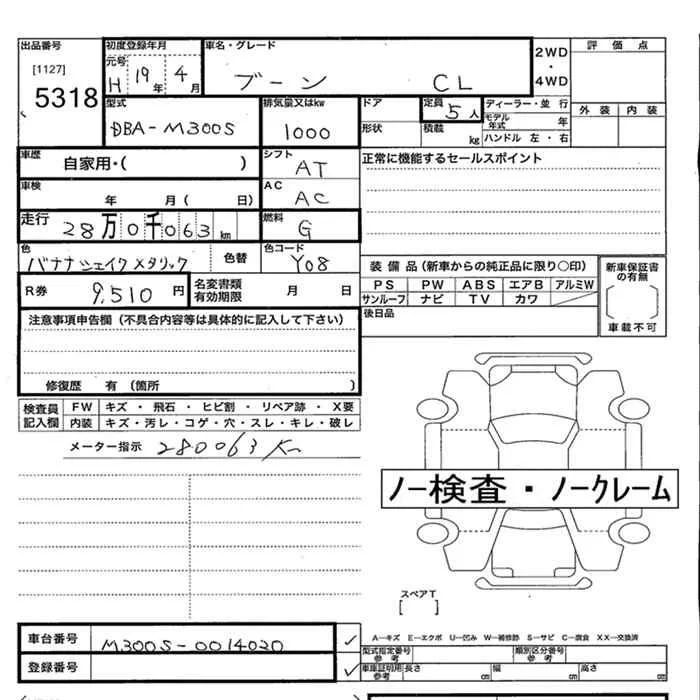 出品番号 初度登録年月 車名・グレード 2WD・4WD 評価点
[1127] 元号
5318 H 19年 4月 ブーン CL
型式 排気量又はkw ドア 定員 5人 ディーラー・並行 外装 内装
DBA-M300S 1000 形状 積載 kg モデル年式 年
ハンドル 左・右
車歴 自家用・( ) シフト AT 正常に機能するセールスポイント
車検 年 月( 日) AC AC
走行 28万0千063km 燃料 G
色 バナナシェイクメタリック 色替 色コード Y08
装備品(新車からの純正品に限り○印) 新車保証書の有無
R券 9,510円 名変書類有効期限 月 日 PS PW ABS エアB アルミW
サンルーフ ナビ TV カワ
車載不可
注意事項申告欄(不具合内容等は具体的に記入して下さい) 後日品
修復歴 有(箇所 )
検査員記入欄 FW キズ・飛石・ヒビ割・リペア跡・X要
内装 キズ・汚レ・コゲ・穴・スレ・キレ・破レ
メーター指示 280063K
ノー検査・ノークレーム
スペアT
[ ]
車台番号 M300S-0014020 ✓ A―キズ E―エクボ U―凹み W―補修跡 S―サビ C―腐食 XX―交換済
型式指定番号 参考 類別区分番号 参考
登録番号 ✓ 車庫証明用参考 長さ cm 幅 cm 高さ cm